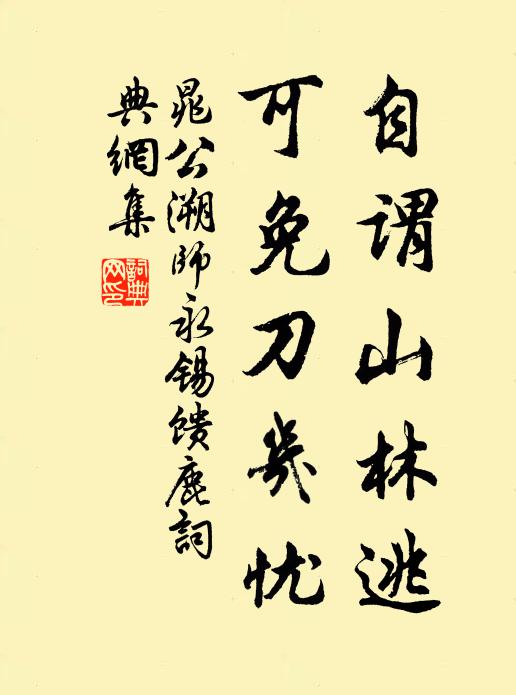 自谓山林逃
可免刀几忧
晁公溯师永锡馈鹿詞
典網集
詞典网印